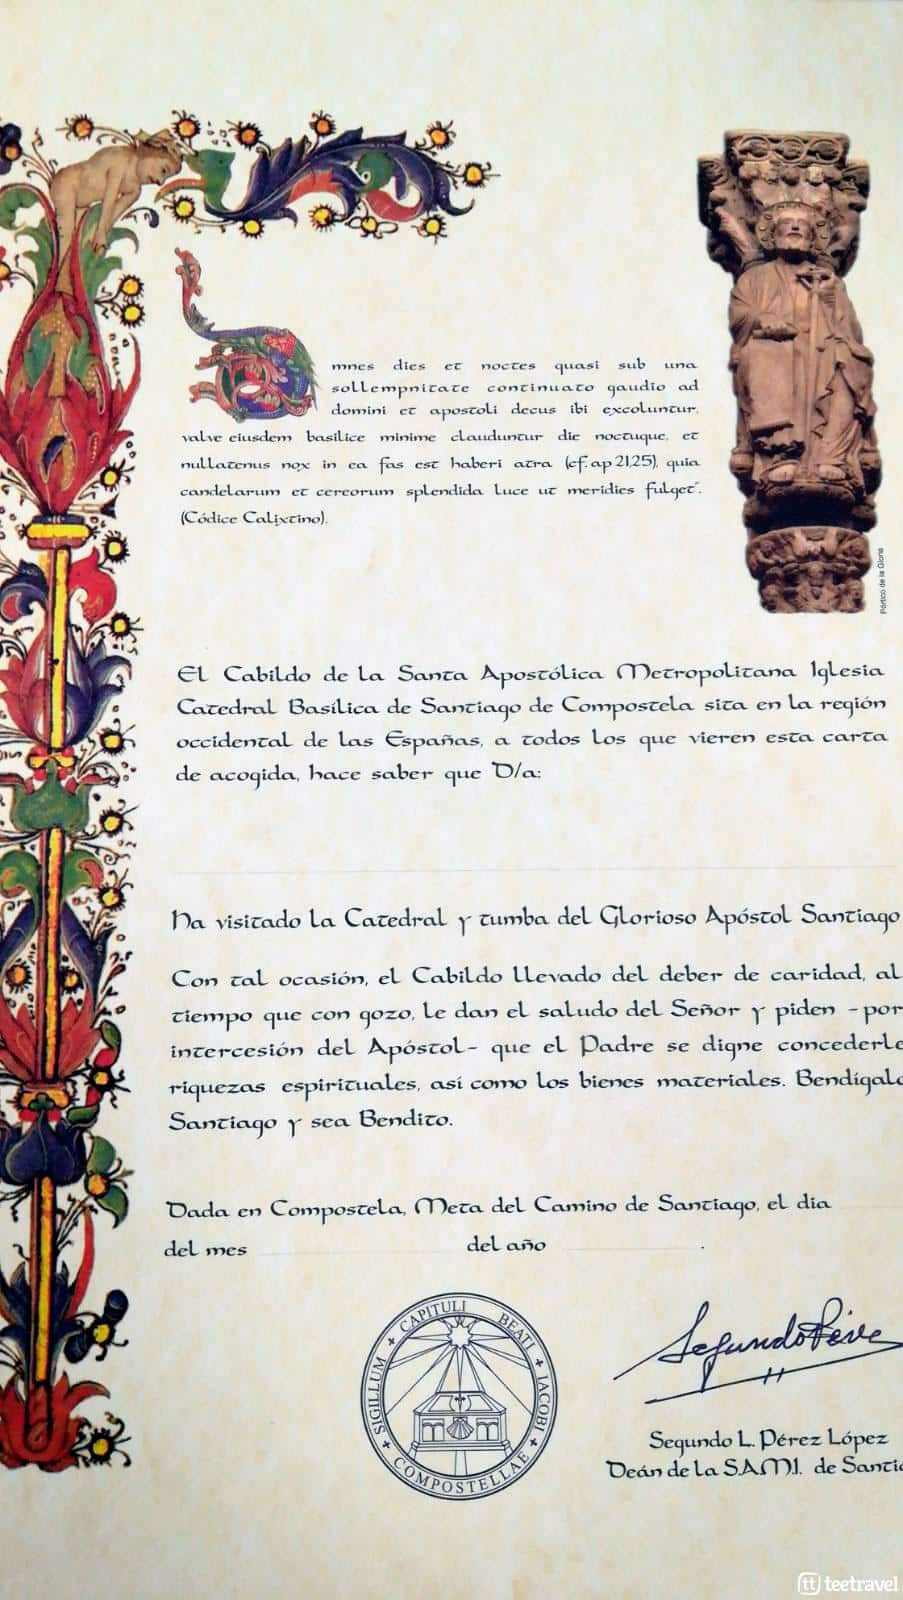 Omnes dies et noctes quasi sub una
sollempnitate continuato gaudio ad
domini et apostoli decus ibi excoluntur,
valve eiusdem basilice minime clauduntur die noctuque, et
nullatenus nox in ea fas est haberi atra (cf. ap 21,25), quia
candelarum et cereorum splendida luce ut meridies fulget".
(Códice Calixtino).
Pórtico de la Gloria
El Cabildo de la Santa Apostólica Metropolitana Iglesia
Catedral Basílica de Santiago de Compostela sita en la región
occidental de las Españas, a todos los que vieren esta carta
de acogida, hace saber que D/a:
Ha visitado la Catedral y tumba del Glorioso Apóstol Santiago
Con tal ocasión, el Cabildo llevado del deber de caridad, al
tiempo que con gozo, le dan el saludo del Señor y piden -por
intercesión del Apóstol- que el Padre se digne concederle
riquezas espirituales, así como los bienes materiales. Bendígalo
Santiago y sea Bendito.
Dada en Compostela, Meta del Camino de Santiago, el dia
del mes del año .
SIGILLUM + CAPITULI BEATI + IACOBI + COMPOSTELLAE +
Segundo Pérez
Segundo L. Pérez López
Deán de la S.A.M.I. de Santi
tt teetravel